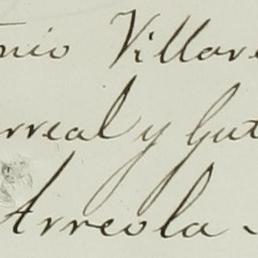 nio Villar
rreal y Gut
Arreola -